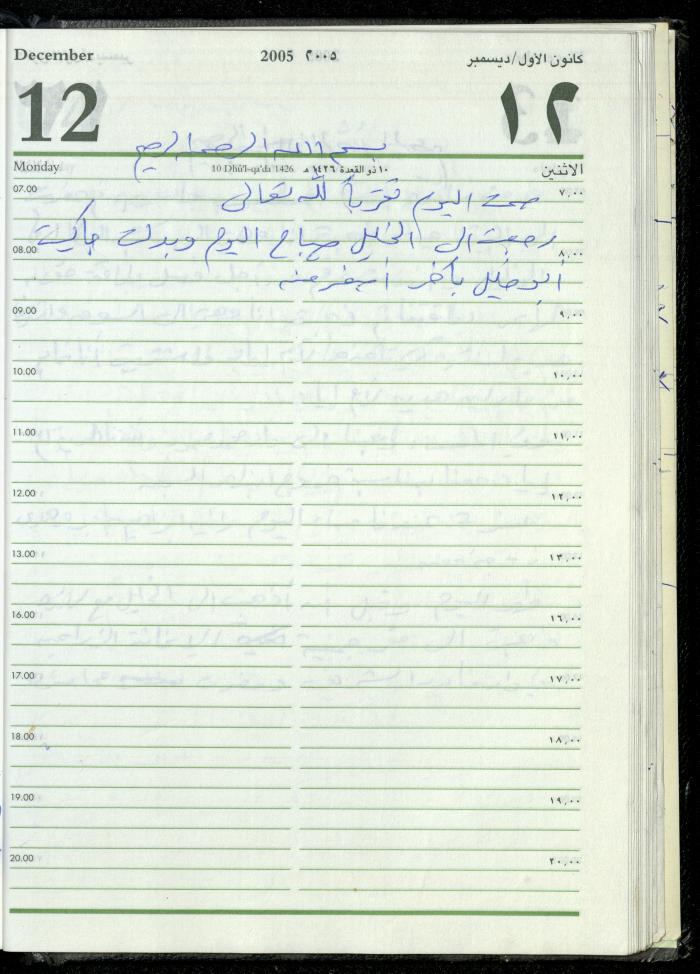 December 2005 ٢٠٠٥ كانون الأول/ديسمبر
12 ١٢
بسم الله الرحمن الرحيم
Monday 10 Dhû'l-qa'da 1426 ١٠ ذو القعدة ١٤٢٦ هـ الاثنين
07.00 ٧,٠٠
صمت اليوم تقرباً لله تعالى
رجعت الى الخليل صباح اليوم وبدلت جاكيت
08.00 ٨,٠٠
أبو خليل بآخر أصغر منه
09.00 ٩,٠٠
10.00 ١٠,٠٠
11.00 ١١,٠٠
12.00 ١٢,٠٠
13.00 ١٣,٠٠
16.00 ١٦,٠٠
17.00 ١٧,٠٠
18.00 ١٨,٠٠
19.00 ١٩,٠٠
20.00 ٢٠,٠٠